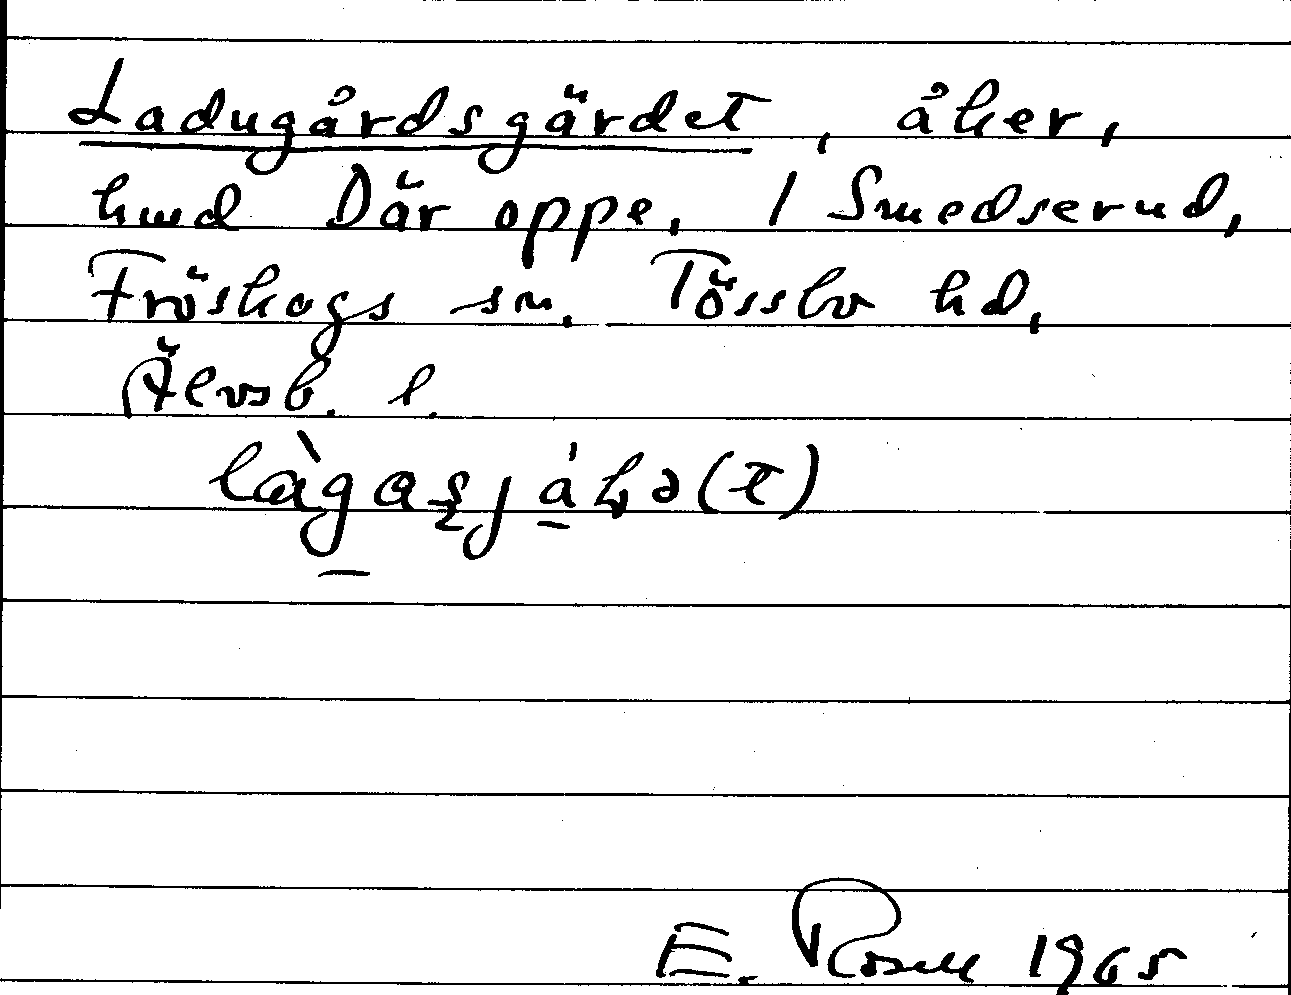 Ladugårdsgärdet, åker,
hmd Där oppe, 1 Smedserud,
Fröskogs sn. Tössbo hd,
Älvsb. l.
E. Rosell 1965